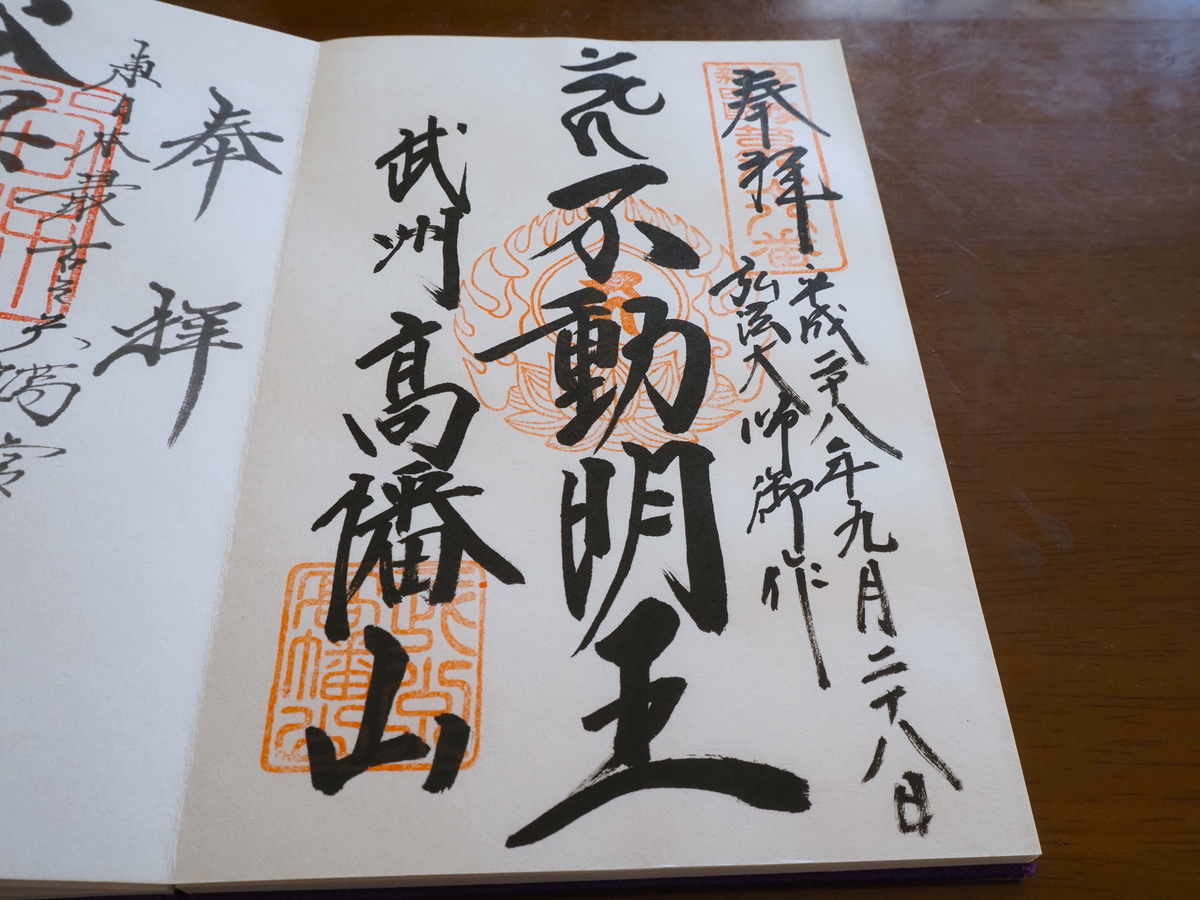 奉拝
平成二十八年九月二十八日
弘法大師御作
不動明王
武州
髙幡山
奉拝
東日本最古之天満宮